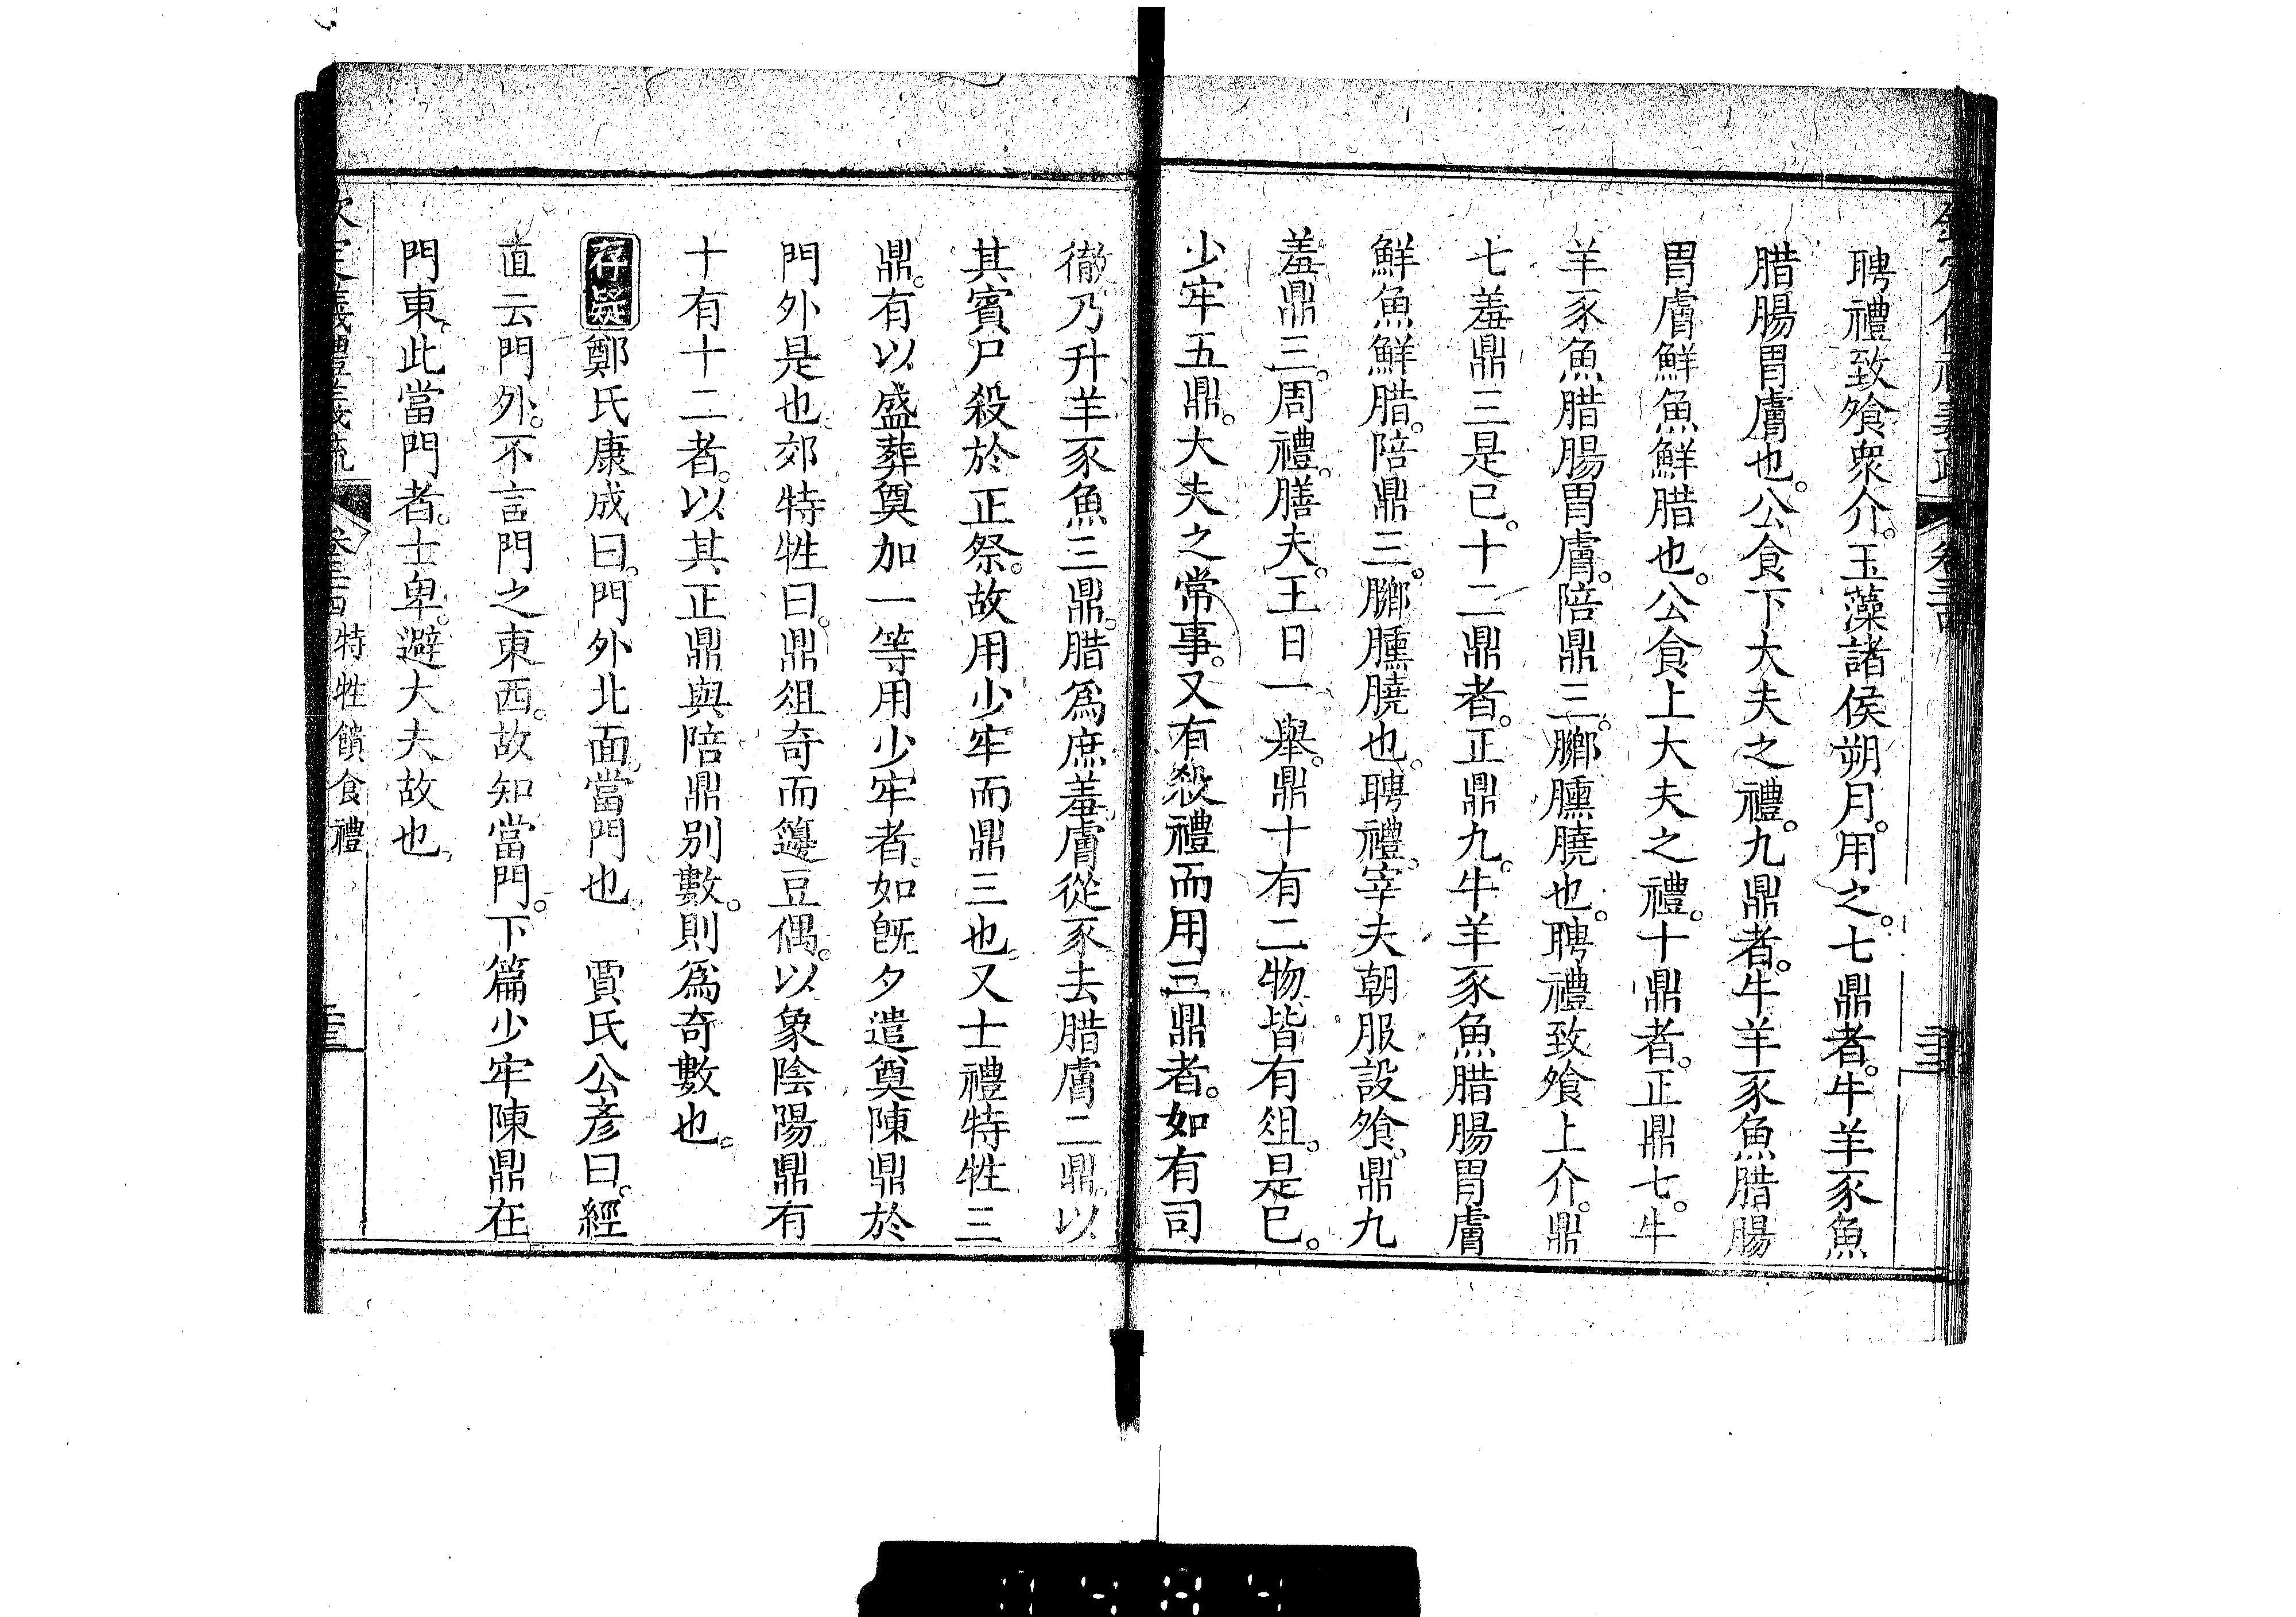 聘禮致飧衆介。玉藻諸侯朔月。用之。七鼎者。牛羊豕魚
腊腸胃膚也。公食下大夫之禮。九鼎者。牛羊豕魚腊腸
胃膚鮮魚鮮腊也。公食上大夫之禮。十鼎者。正鼎七。牛
羊豕魚腊腸胃膚。陪鼎三。膷臐膮也。聘禮致飧上介。鼎
七羞鼎三是已。十二鼎者。正鼎九。牛羊豕魚腊腸胃膚
鮮魚鮮腊。陪鼎三。膷臐膮也。聘禮。宰夫朝服設飧。鼎九
羞鼎三。周禮。膳夫。王日一舉。鼎十有二物皆有俎。是已。
少牢五鼎。大夫之常事。又有殺禮而用三鼎者。如有司
徹乃升羊豕魚三鼎。腊爲庶羞。膚從豕去腊膚二鼎。以
其賓尸殺於正祭。故用少牢而鼎三也。又士禮特牲三
鼎。有以盛葬奠加一等用少牢者。如旣夕遣奠陳鼎於
門外是也。郊特牲曰。鼎俎奇而籩豆偶。以象陰陽鼎有
十有十二者。以其正鼎與陪鼎別數。則爲奇數也。
存疑 鄭氏康成曰。門外北面。當門也。 賈氏公彥曰。經
直云門外。不言門之東西。故知當門。下篇少牢陳鼎在
門東。此當門者。士卑。避大夫故也。
欽定儀禮義疏 卷三十四 特牲饋食禮